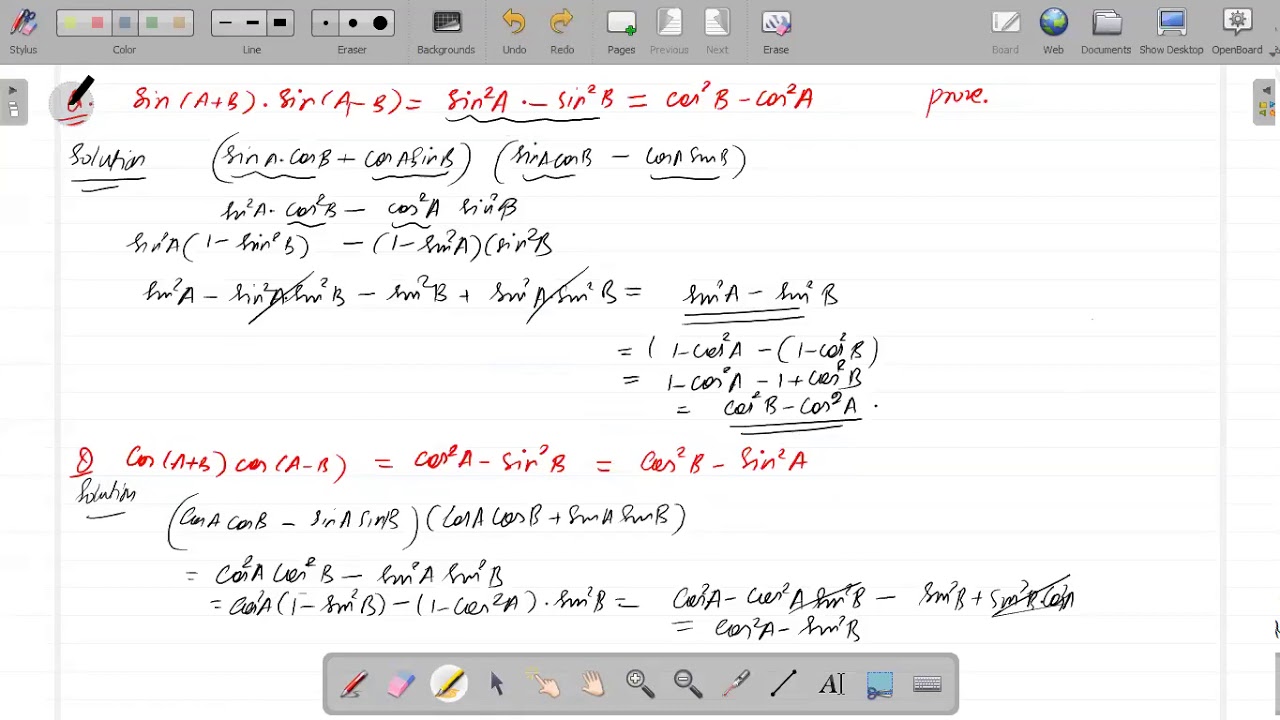 Stylus Color Line Eraser Backgrounds Undo Redo Pages Previous Next Erase Board Web Documents Show Desktop OpenBoard
Q. sin(A+B).sin(A-B)= sin²A - sin²B = cos²B - cos²A prove.
Solution (sinA.cosB + cosAsinB) (sinAcosB - cosAsinB)
sin²A. cos²B - cos²A sin²B
sin²A(1-sin²B) - (1-sin²A)(sin²B
sin²A - sin²Asin²B - sin²B + sin²A.sin²B = sin²A - sin²B
= ( 1-cos²A - (1-cos²B)
= 1-cos²A - 1+cos²B
= cos²B - cos²A .
Q Cos(A+B) cos(A-B) = cos²A - sin²B = cos²B - sin²A
Solution
(cosA cosB - sinA sinB) (cosA cosB + sinA sinB)
= cos²A cos²B - sin²A sin²B
= cos²A(1-sin²B) - (1-cos²A).sin²B = cos²A - cos²A sin²B - sin²B + sin²B cos²A
= cos²A - sin²B